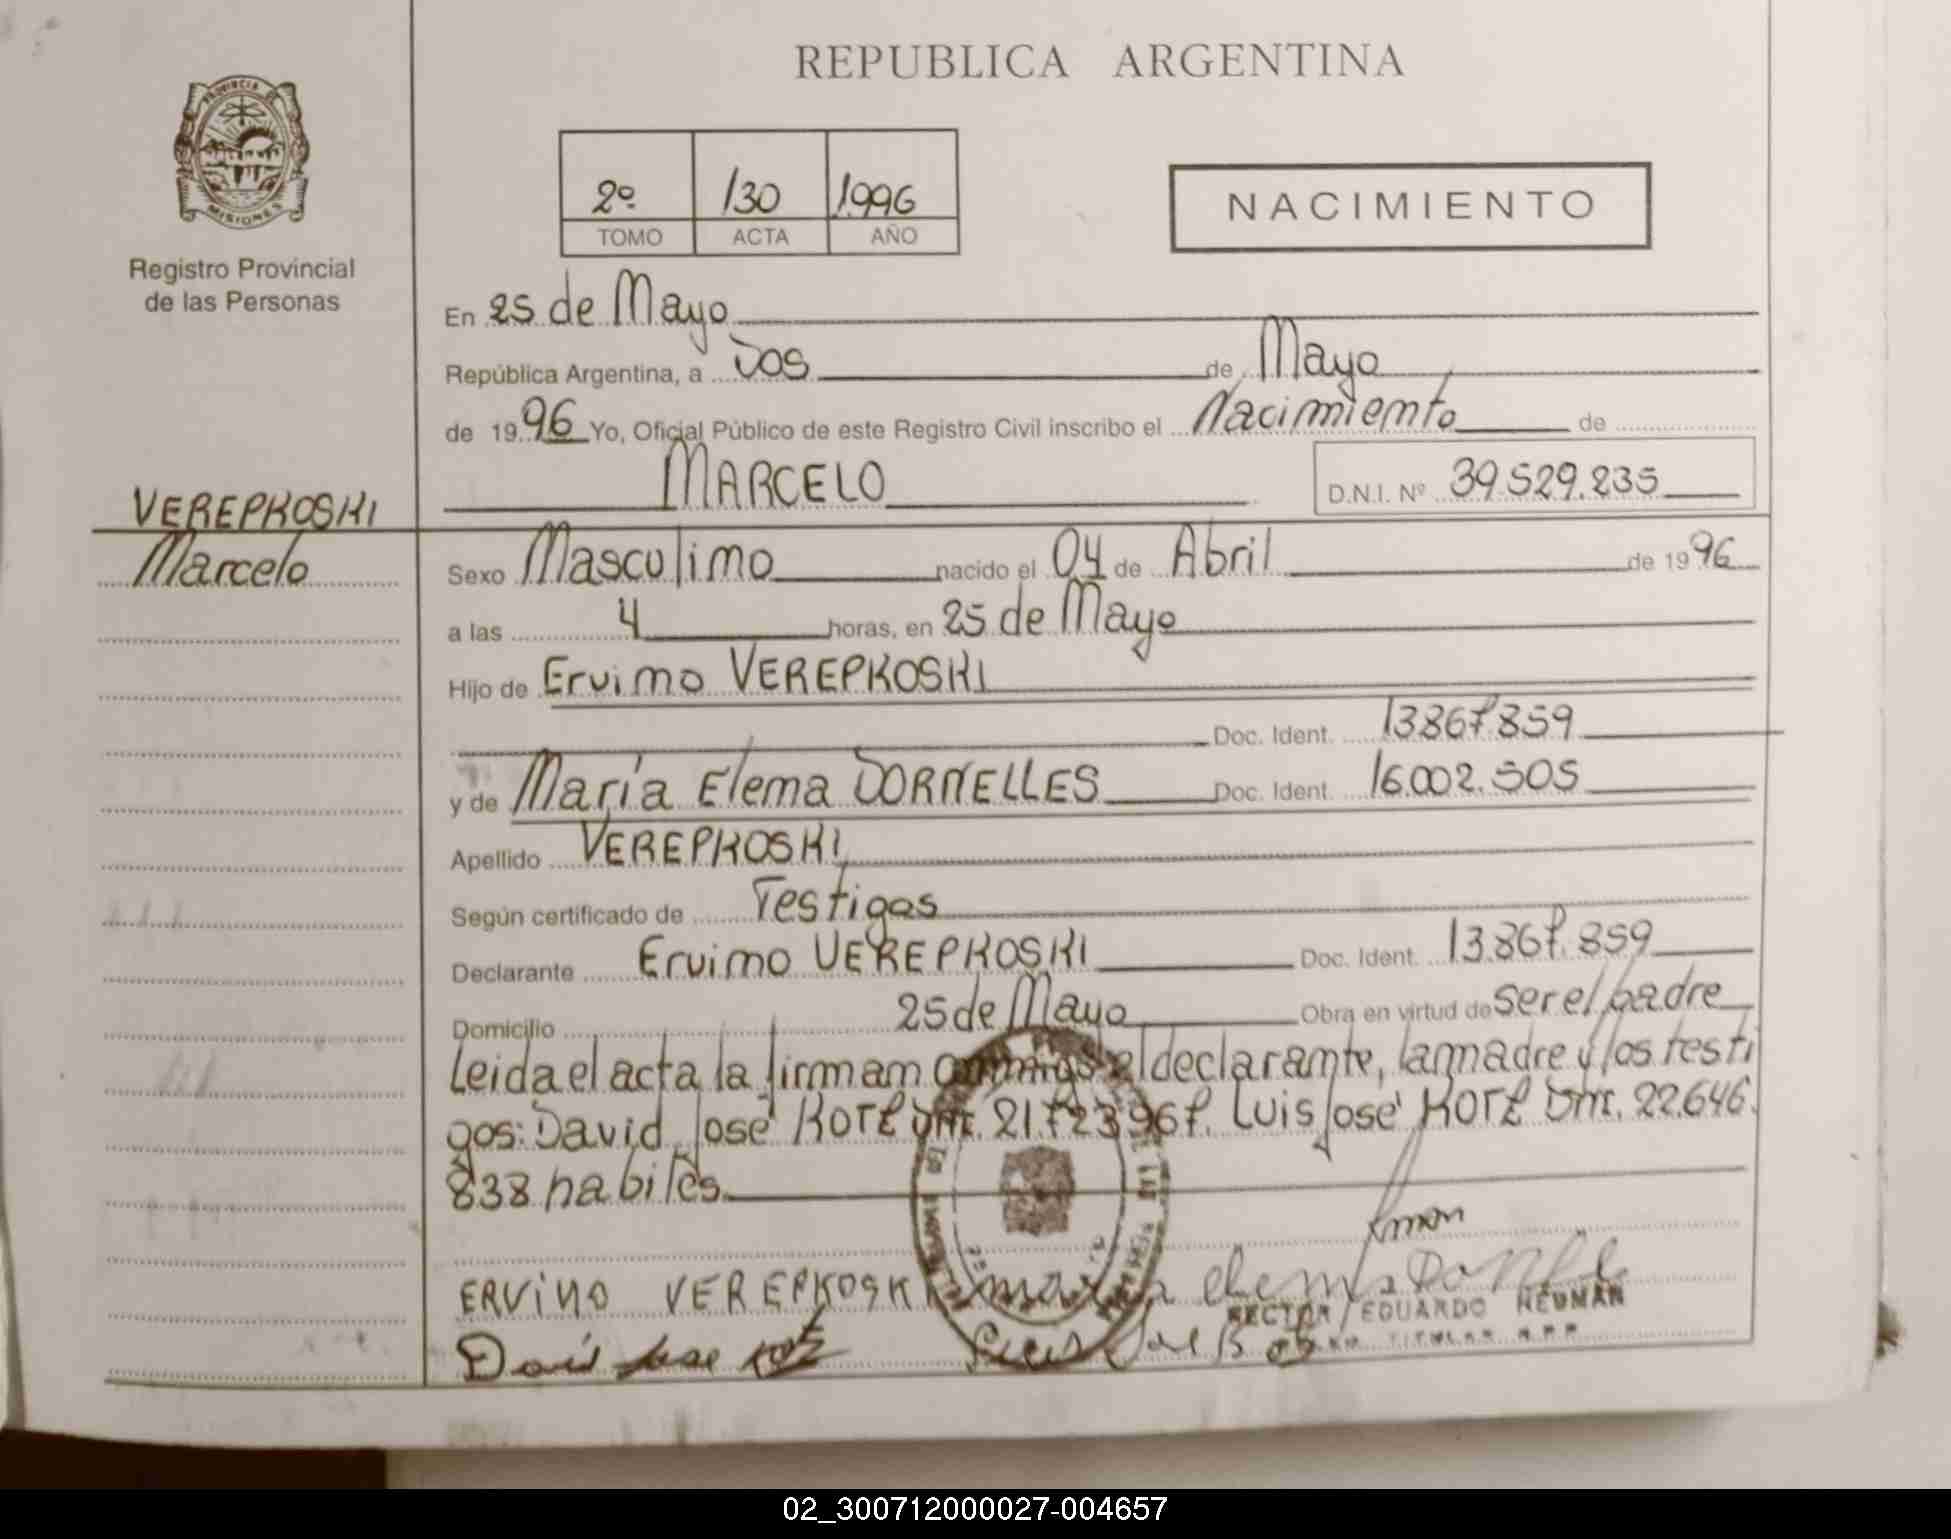 REPUBLICA ARGENTINA
PROVINCIA DE
MISIONES
Registro Provincial
de las Personas
2º 130 1996
TOMO ACTA AÑO
NACIMIENTO
En 25 de Mayo
República Argentina, a Dos de Mayo
de 1996 Yo, Oficial Público de este Registro Civil inscribo el Nacimiento de
MARCELO D.N.I. Nº 39.529.235
VEREPKOSKI
Marcelo
Sexo Masculino nacido el 04 de Abril de 1996
a las 4 horas, en 25 de Mayo
Hijo de Ervino VEREPKOSKI
Doc. Ident. 13867.859
y de María Elena DORNELLES Doc. Ident. 16.002.505
Apellido VEREPKOSKI
Según certificado de Testigos
Declarante Ervino VEREPKOSKI Doc. Ident. 13.867.859
Domicilio 25 de Mayo Obra en virtud de ser el padre
Leida el acta la firman conmigo el declarante, la madre y los testi
gos: David José KOTZ DNI. 21.723967. Luis José KOTZ DNI. 22.646.
838 habiles.
ERVINO VEREPKOSKI
HECTOR EDUARDO NEUMAN
02_300712000027-004657